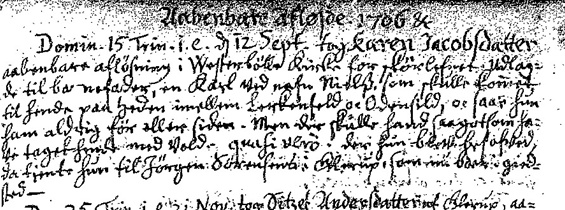 Aabenbare afløste 1706 &
Domin. 15 Trin. i. e. d 12 Sept. tog Karen Jacobsdatter
aabenbare afløsning i Westerbølle Kircke for skørlefnet. Udlag-
de til barnefader, en Karl ved nafn Niels, som skulle kommet
til hende paa heden imellem Lerkenfeld oc Odensild, oc saae hun
ham aldrig før eller siden. Men der skulle hand saa got som ha-
fve taget hende med Vold. quasi vero. der hun blef besofvet,
da tiente hun til Jörgen Sørensens i Glerup, som nu boer i Gied-
sted.
25 Trin. i. e. 21 Nov. tog Sitzel Andersdatter af Glerup, aa-